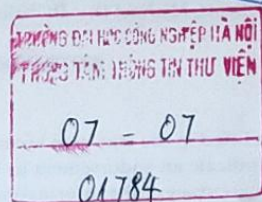 TRƯỜNG ĐẠI HỌC CÔNG NGHIỆP HÀ NỘI
TRUNG TÂM THÔNG TIN THƯ VIỆN
07 - 07
01784